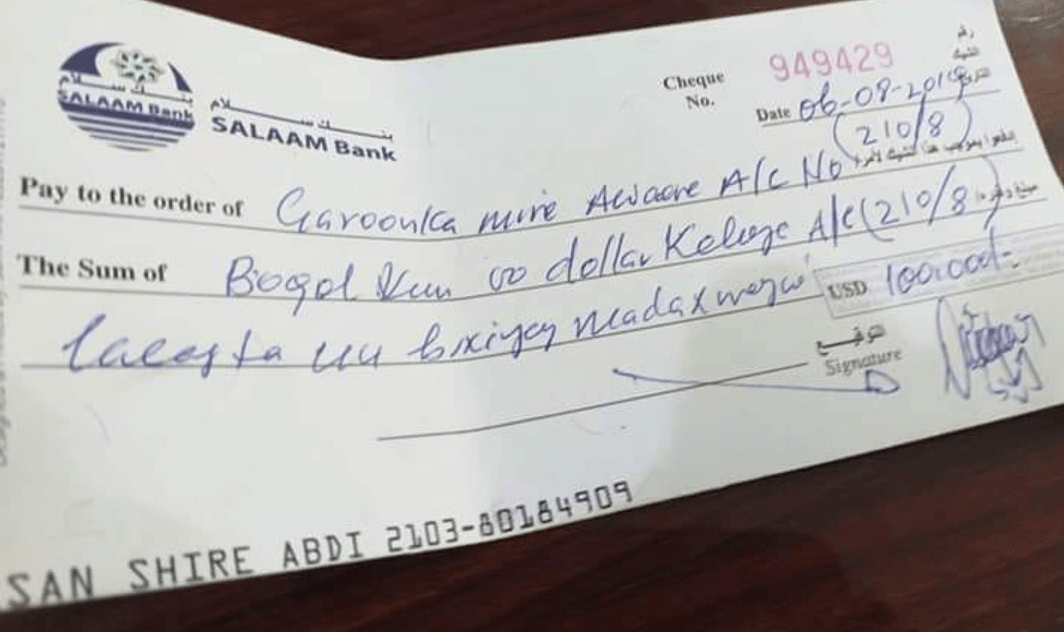 SALAAM Bank
بنك سلام
SALAAM Bank
Cheque No.
949429
رقم الشيك
Date 06-09-2019 التاريخ
(210/8)
Pay to the order of Garoonka mire Awaare A/c No إدفعوا بموجب هذا الشيك لأمر
The Sum of Boqol Kun oo dollar A/c (210/8)
USD 100.000
uu bixiyey madaxweyw
التوقيع
Signature
SAN SHIRE ABDI 2103-80184909